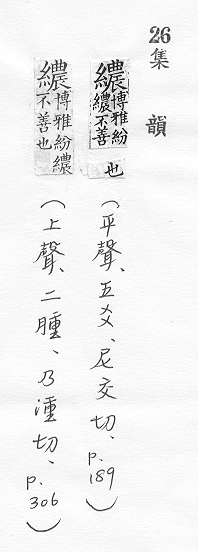 26
集韻
繷博雅紛
繷不善
也
(平聲、五爻、尼交切、p.189)
繷博雅紛繷
不善也
(上聲、二腫、乃湩切、p.306)